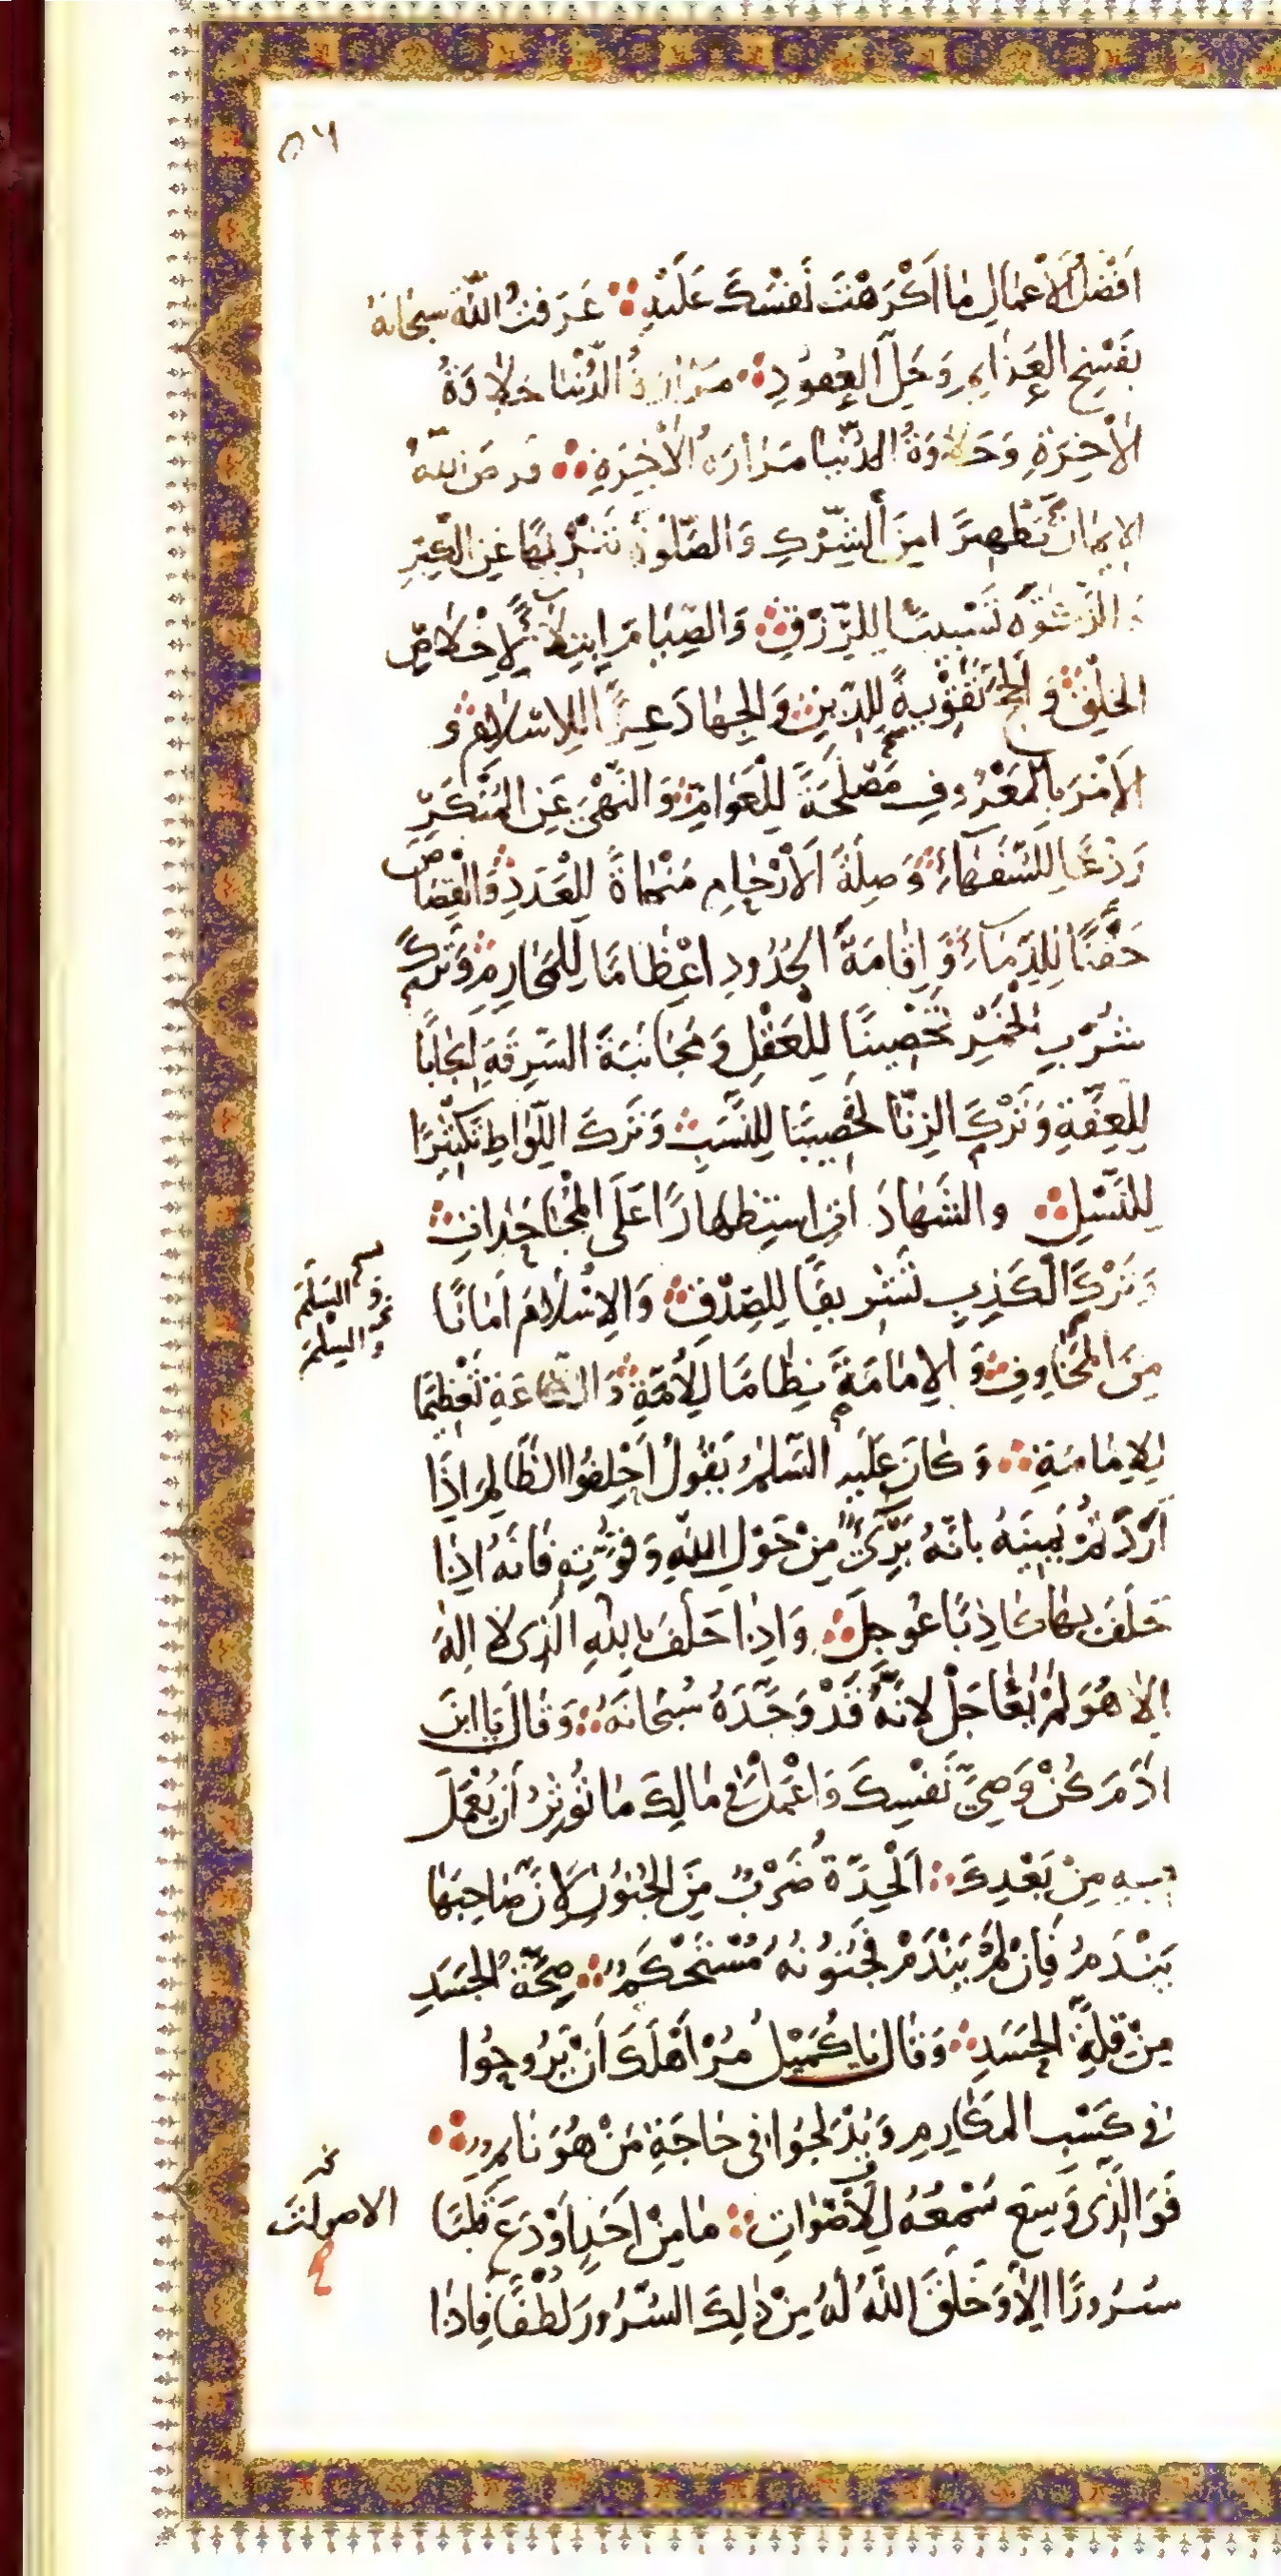 ٥٦
اَفْضَلُ الْاَعْمَالِ مَا اَكْرَهْتَ نَفْسَكَ عَلَيْهِ عَرَفْتُ اللّٰهَ سُبْحَانَهُ
بِفَسْخِ الْعَزَائِمِ وَحَلِّ الْعُقُودِ مَرَارَةُ الدُّنْيَا حَلَاوَةُ
الْاٰخِرَةِ وَحَلَاوَةُ الدُّنْيَا مَرَارَةُ الْاٰخِرَةِ فَرَضَ اللّٰهُ
الْاِيمَانَ تَطْهِيرًا مِنَ الشِّرْكِ وَالصَّلٰوةَ تَنْزِيهًا عَنِ الْكِبْرِ
وَالزَّكٰوةَ تَسْبِيبًا لِلرِّزْقِ وَالصِّيَامَ ابْتِلَاءً لِاِخْلَاصِ
الْخَلْقِ وَالْحَجَّ تَقْوِيَةً لِلدِّينِ وَالْجِهَادَ عِزًّا لِلْاِسْلَامِ وَ
الْاَمْرَ بِالْمَعْرُوفِ مَصْلَحَةً لِلْعَوَامِّ وَالنَّهْيَ عَنِ الْمُنْكَرِ
رَدْعًا لِلسُّفَهَاءِ وَصِلَةَ الْاَرْحَامِ مَنْمَاةً لِلْعَدَدِ وَالْقِصَاصَ
حَقْنًا لِلدِّمَاءِ وَاِقَامَةَ الْحُدُودِ اِعْظَامًا لِلْمَحَارِمِ وَتَرْكَ
شُرْبِ الْخَمْرِ تَحْصِينًا لِلْعَقْلِ وَمُجَانَبَةَ السَّرِقَةِ اِيجَابًا
لِلْعِفَّةِ وَتَرْكَ الزِّنَا تَحْصِينًا لِلنَّسَبِ وَتَرْكَ اللِّوَاطِ تَكْثِيرًا
لِلنَّسْلِ والشَّهَادَاتِ اسْتِظْهَارًا عَلَى الْمُجَاحَدَاتِ
وَتَرْكَ الْكَذِبِ تَشْرِيفًا لِلصِّدْقِ وَالْاِسْلَامَ اَمَانًا
والسَّلَمَ
والسِّلْمَ
مِنَ الْمَخَاوِفِ وَالْاِمَامَةَ نِظَامًا لِلْاُمَّةِ وَالطَّاعَةَ تَعْظِيمًا
لِلْاِمَامَةِ وَكَانَ عَلَيْهِ السَّلٰمُ يَقُولُ اَحْلِفُوا الظَّالِمَ اِذَا
اَرَدْتُمْ يَمِينَهُ بِاَنَّهُ بَرِيءٌ مِنْ حَوْلِ اللّٰهِ وَقُوَّتِهِ فَاِنَّهُ اِذَا
حَلَفَ بِهَا كَاذِبًا عُوجِلَ وَاِذَا حَلَفَ بِاللّٰهِ الَّذِى لَا اِلٰهَ
اِلَّا هُوَ لَمْ يُعَاجَلْ لِاَنَّهُ قَدْ وَحَّدَهُ سُبْحَانَهُ وَقَالَ يَا ابْنَ
اٰدَمَ كُنْ وَصِيَّ نَفْسِكَ وَاعْمَلْ فِى مَالِكَ مَا تُؤْثِرُ اَنْ يُعْمَلَ
فِيهِ مِنْ بَعْدِكَ اَلْحِدَّةُ ضَرْبٌ مِنَ الْجُنُونِ لِاَنَّ صَاحِبَهَا
يَنْدَمُ فَاِنْ لَمْ يَنْدَمْ فَجُنُونُهُ مُسْتَحْكَمٌ صِحَّةُ الْجَسَدِ
مِنْ قِلَّةِ الْحَسَدِ وَقَالَ يَا كُمَيْلُ مُرْ اَهْلَكَ اَنْ يَرُوحُوا
فِى كَسْبِ الْمَكَارِمِ وَيُدْلِجُوا فِى حَاجَةِ مَنْ هُوَ نَائِمٌ
فَوَالَّذِى وَسِعَ سَمْعُهُ الْاَصْوَاتَ مَا مِنْ اَحَدٍ اَوْدَعَ قَلْبًا
الاصوات
سُرُورًا اِلَّا وَخَلَقَ اللّٰهُ لَهُ مِنْ ذٰلِكَ السُّرُورِ لُطْفًا فَاِذَا